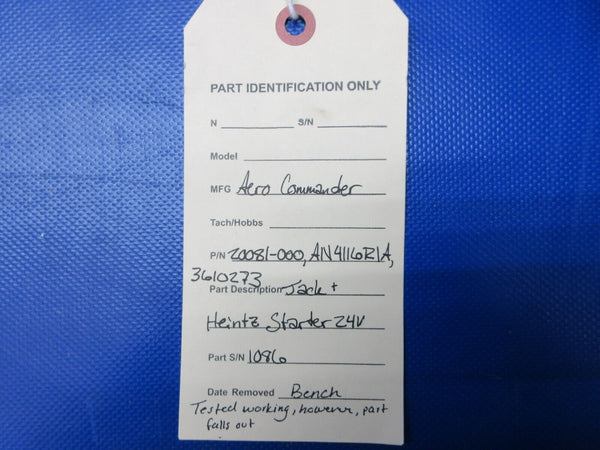 PART IDENTIFICATION ONLY
N S/N
Model
MFG Aero Commander
Tach/Hobbs
P/N 20081-000, AN4116R1A,
3610273
Part Description Jack +
Heintz Starter 24V
Part S/N 1086
Date Removed Bench
Tested working, however, part
falls out